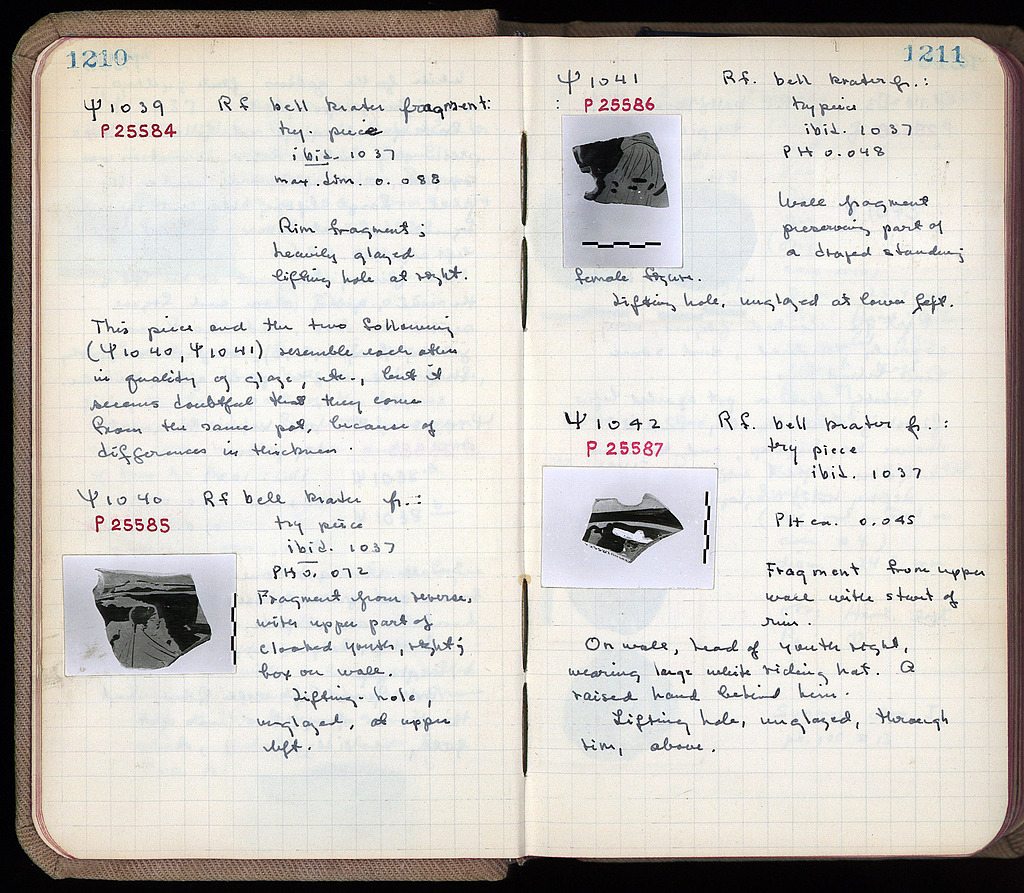 1210
Ψ1039 Rf bell krater fragment:
P 25584
try. piece
ibid. 1037
max. dim. 0.088
Rim fragment;
heavily glazed
lifting hole at right.
This piece and the two following
(Ψ1040, Ψ1041) resemble each other
in quality of glaze, etc., but it
seems doubtful that they come
from the same pot, because of
differences in thickness.
Ψ1040 Rf bell krater fr.:
P 25585
try piece
ibid. 1037
PH 0.072
Fragment from reverse,
with upper part of
cloaked youth, right;
box on wall.
Lifting-hole,
unglazed, at upper
left.
1211
Ψ1041 Rf. bell krater fr.:
P 25586
try piece
ibid. 1037
PH 0.048
Wall fragment
preserving part of
a draped standing
female figure.
Lifting hole, unglazed at lower left.
Ψ1042 Rf. bell krater fr.:
P 25587
try piece
ibid. 1037
PH ca. 0.045
Fragment from upper
wall with start of
rim.
On wall, head of youth right,
wearing large white riding hat. A
raised hand behind him.
Lifting hole, unglazed, through
rim, above.